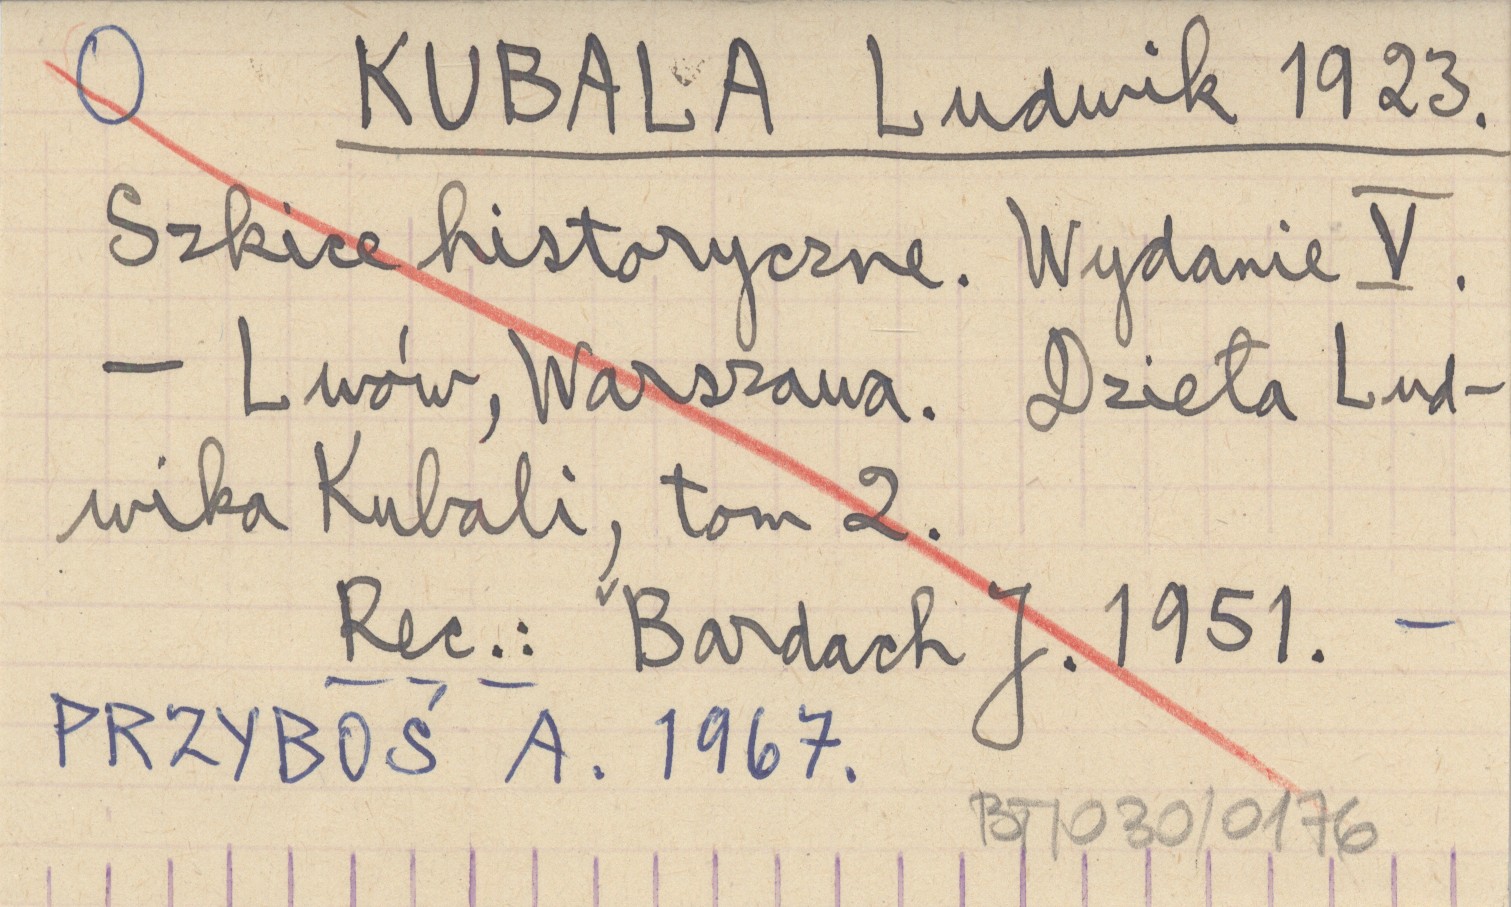 O KUBALA Ludwik 1923.
Szkice historyczne. Wydanie V.
— Lwów, Warszawa. Dzieła Lud-
wika Kubali, tom 2.
Rec.: Bardach J. 1951. —
PRZYBOŚ A. 1967.
BT/030/0176